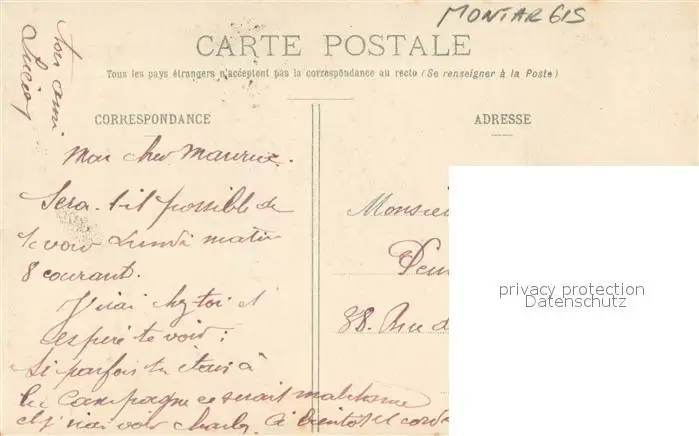 MONTARGIS
CARTE POSTALE
Tous les pays étrangers n'acceptent pas la correspondance au recto (Se renseigner à la Poste)
CORRESPONDANCE
ADRESSE
Mon cher Maurice.
Sera-t-il possible de
te voir Lundi matin
8 courant.
J'irai chez toi et
espère te voir ;
si parfois tu étais à
la campagne ce serait
et j'irai voir Charles. à bientôt et
ton ami
Lucien
Monsie
38. Rue d
privacy protection
Datenschutz